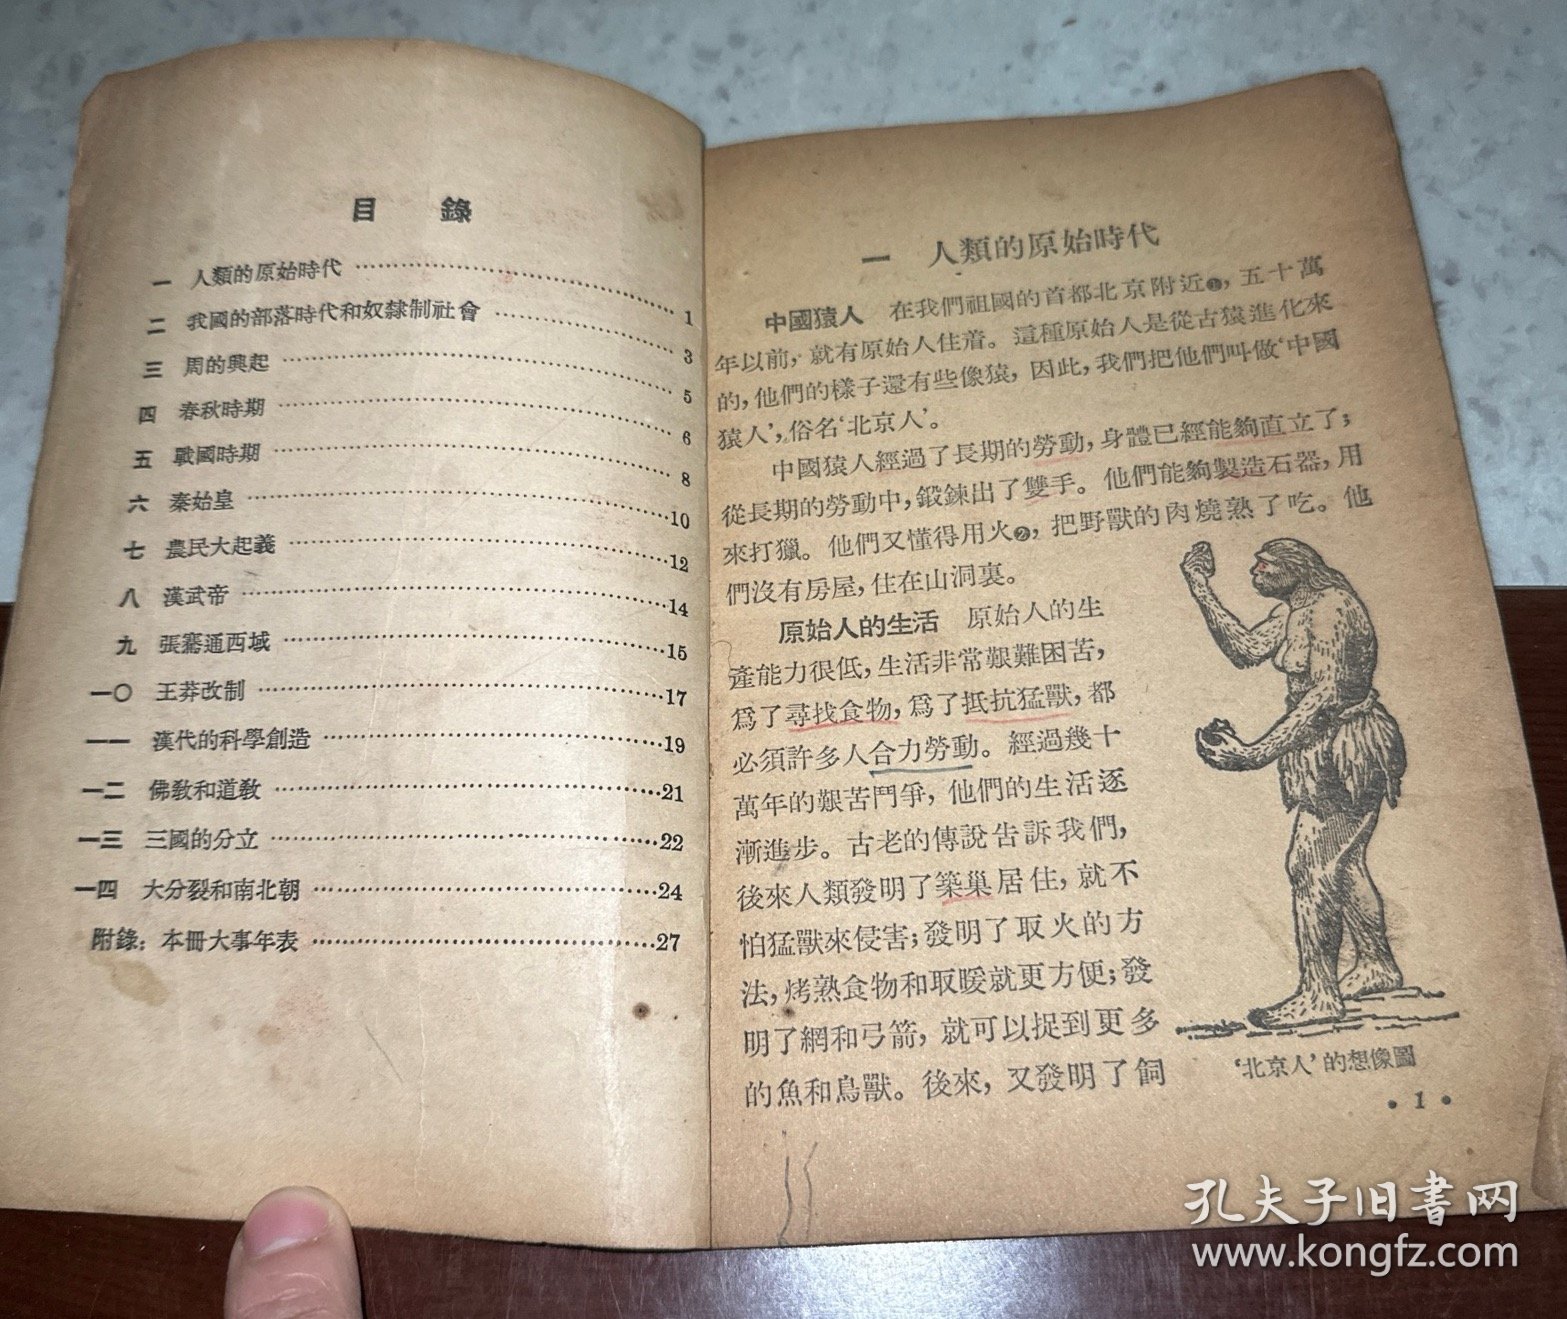 目　錄
一　人類的原始時代……1
二　我國的部落時代和奴隸制社會……3
三　周的興起……5
四　春秋時期……6
五　戰國時期……8
六　秦始皇……10
七　農民大起義……12
八　漢武帝……14
九　張騫通西域……15
一〇　王莽改制……17
一一　漢代的科學創造……19
一二　佛教和道教……21
一三　三國的分立……22
一四　大分裂和南北朝……24
附錄：本冊大事年表……27
一　人類的原始時代
中國猿人　在我們祖國的首都北京附近❶，五十萬
年以前，就有原始人住着。這種原始人是從古猿進化來
的，他們的樣子還有些像猿，因此，我們把他們叫做‘中國
猿人’，俗名‘北京人’。
中國猿人經過了長期的勞動，身體已經能夠直立了；
從長期的勞動中，鍛鍊出了雙手。他們能夠製造石器，用
來打獵。他們又懂得用火❷，把野獸的肉燒熟了吃。他
們沒有房屋，住在山洞裏。
原始人的生活　原始人的生
產能力很低，生活非常艱難困苦，
爲了尋找食物，爲了抵抗猛獸，都
必須許多人合力勞動。經過幾十
萬年的艱苦鬥爭，他們的生活逐
漸進步。古老的傳說告訴我們，
後來人類發明了築巢居住，就不
怕猛獸來侵害；發明了取火的方
法，烤熟食物和取暖就更方便；發
明了網和弓箭，就可以捉到更多
的魚和鳥獸。後來，又發明了飼
‘北京人’的想像圖
•1•
孔夫子旧書网
www.kongfz.com